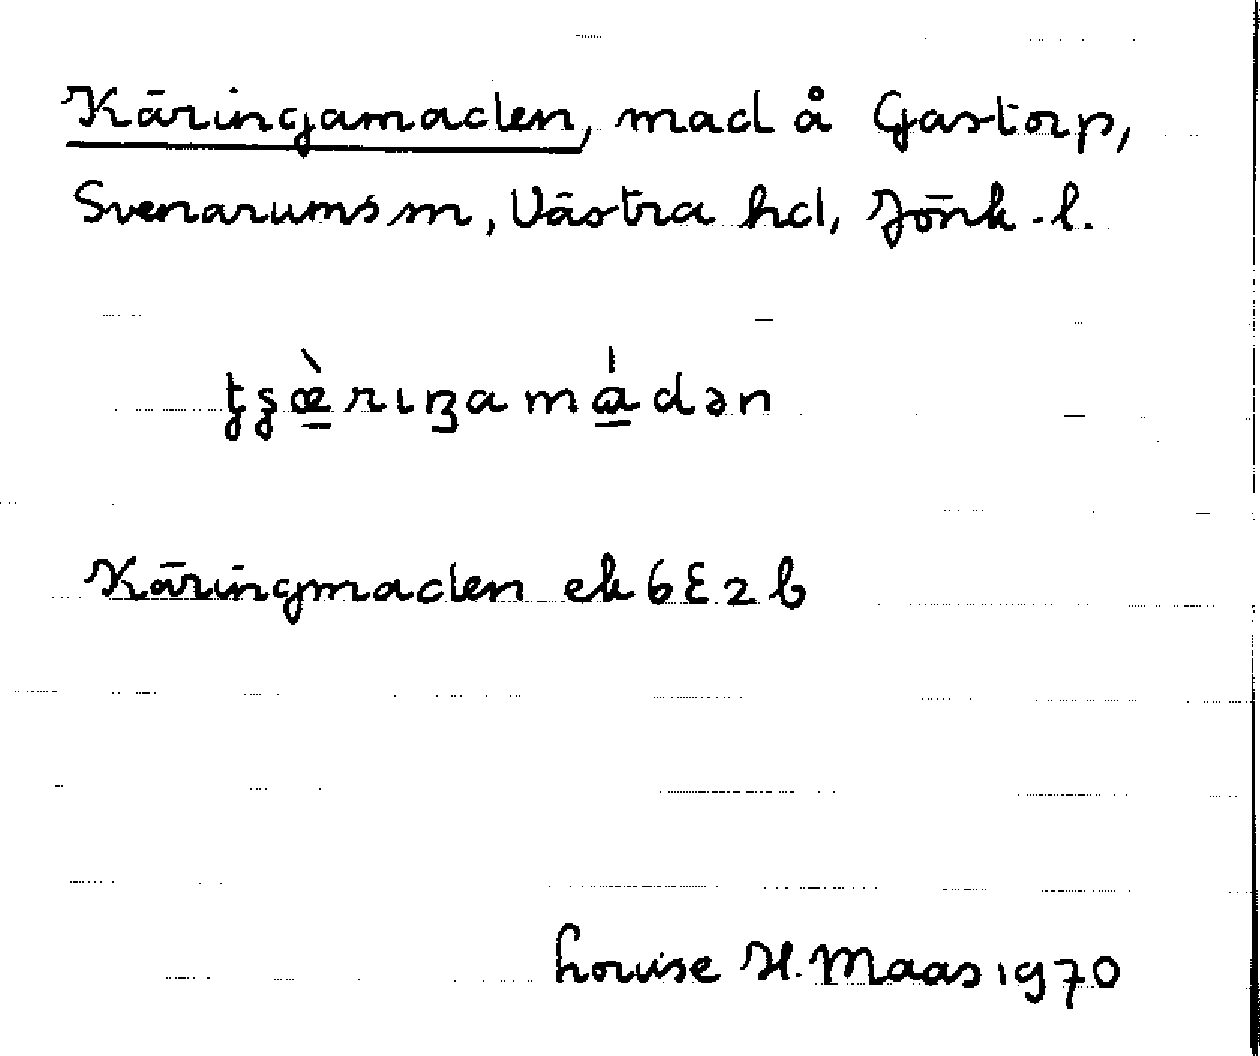 Käringamaden, mad å Gastorp,
Svenarums sn, Västra hd, Jönk. l.
Käringmaden ek 6E2b
Louise H. Maas 1970